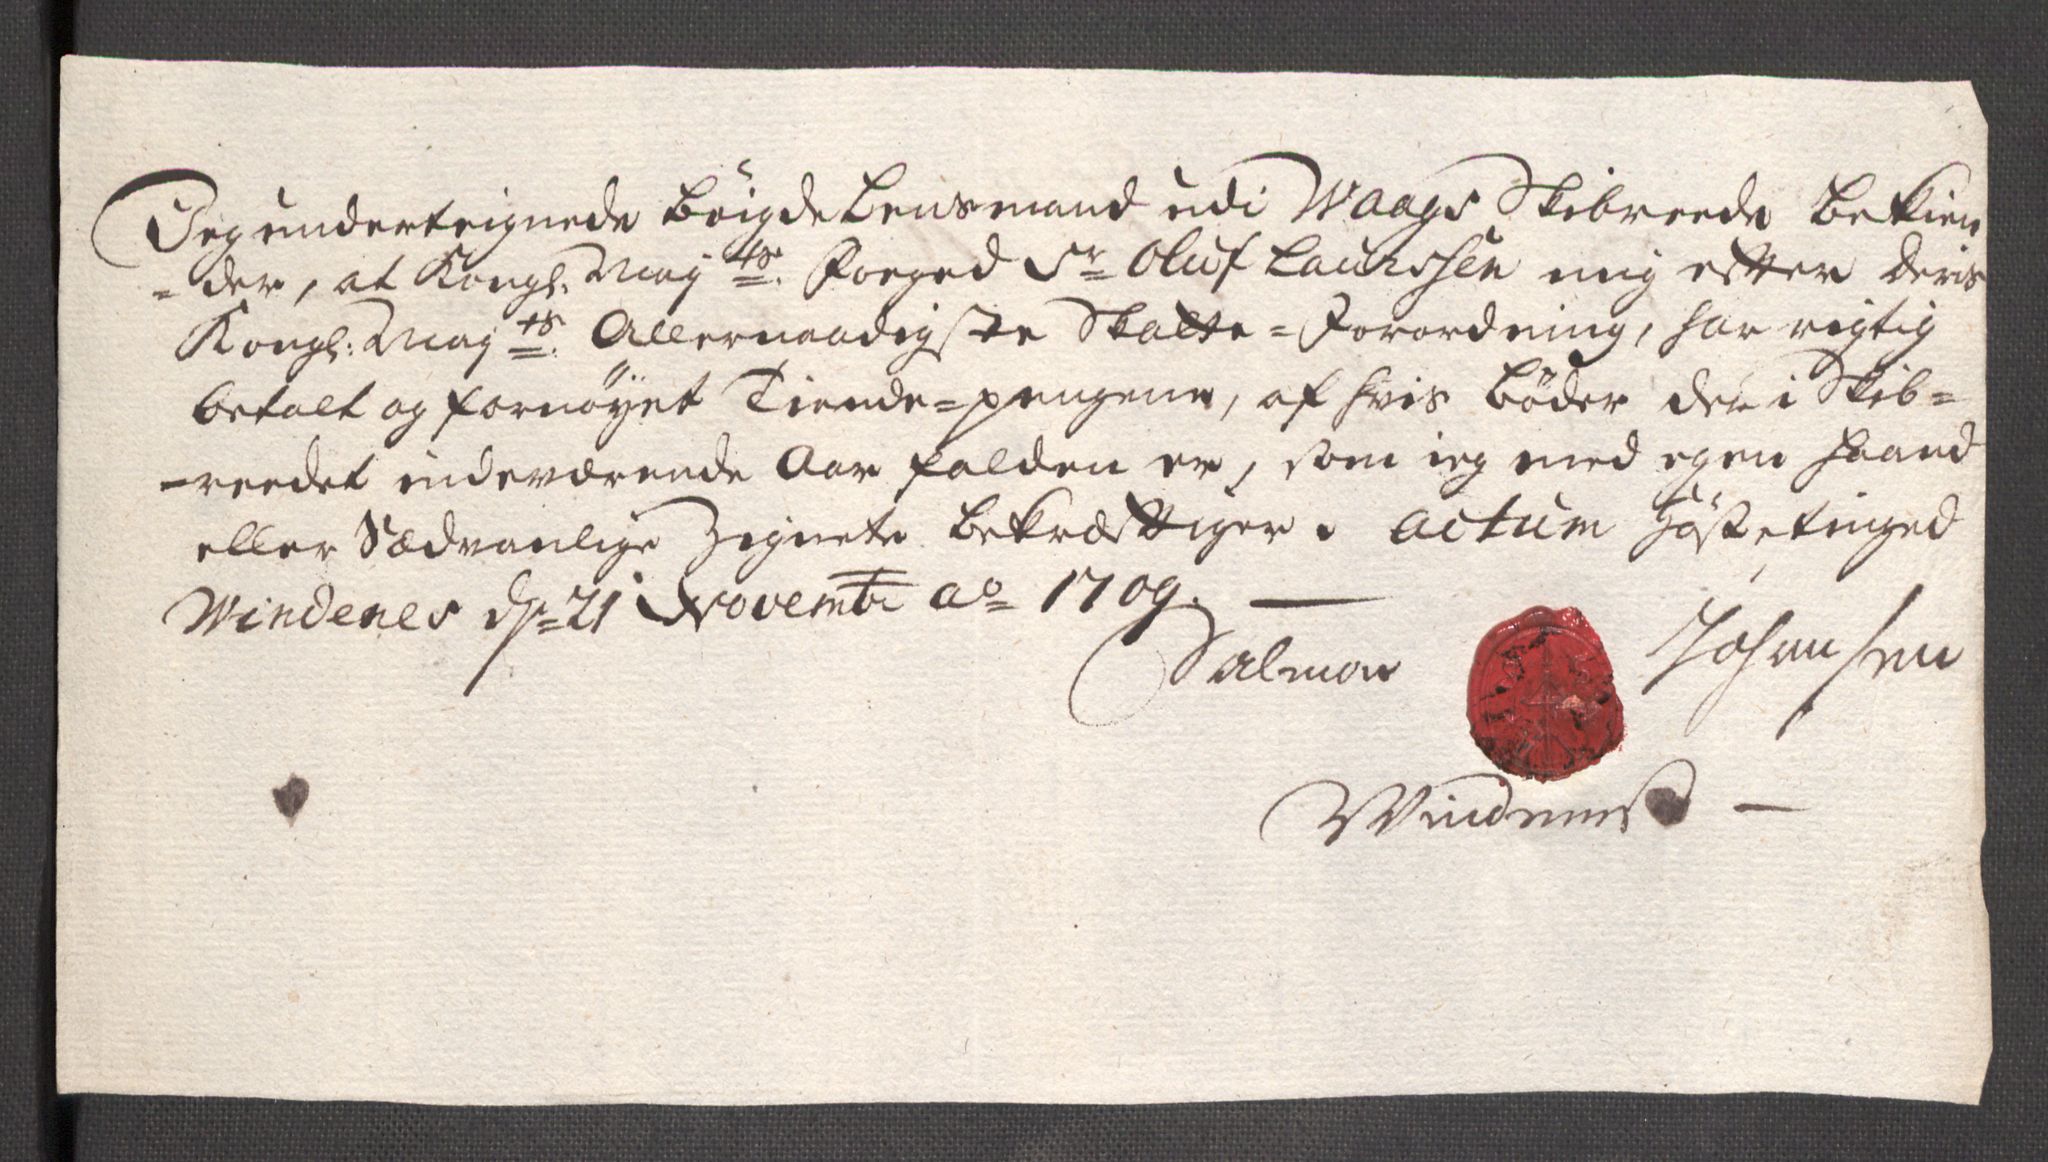 Jeg underteignede Böigde Lensmand udi Waags Skibreede Bekien
=der, at Kongl: May:ts: Foeged Sr Oluf Laurssen mig efter deris
Kongl: May:ts: Allernaadigste Skatte=Forordning, har rigtig
betalt og fornöyet Tiende=pengene, af hvis Böder der i Skib=
=reedet indeværende Aar falden er, som ieg med egen Haand
eller Sædvanlige Zignete bekræfftiger. Actum Höstetinged
Windenes dn 21 Novembr ao 1709.
Salmon Johansen
Windenes